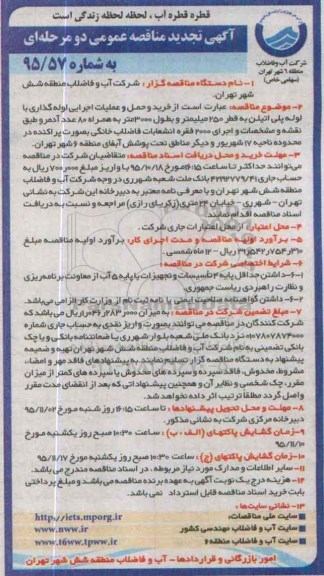 قطره قطره آب، لحظه لحظه زندگی است
آگهی تجدید مناقصه عمومی دو مرحله‌ای
به شماره ۹۵/۵۷
شرکت آب و فاضلاب
منطقه ۶ شهر تهران
(سهامی خاص)
۱- نام دستگاه مناقصه گزار: شرکت آب و فاضلاب منطقه شش
شهر تهران.
۲- موضوع مناقصه: عبارت است از خرید و حمل و عملیات اجرایی لوله گذاری با
لوله پلی اتیلن به قطر ۲۵۰ میلیمتر و بطول ۳۰۰۰ متر به همراه ۸۰ عدد آدمرو طبق
نقشه و مشخصات و اجرای ۲۰۰۰ فقره انشعابات فاضلاب خانگی بصورت پراکنده در
محدوده ناحیه ۱۷ شهریور و دیگر مناطق تحت پوشش آبفای منطقه ۶ شهر تهران.
۳- مهلت خرید و محل دریافت اسناد مناقصه: متقاضیان شرکت در مناقصه
می‌توانند حداکثر تا ساعت ۱۶:۱۵ مورخ ۹۵/۱۰/۱۸ با واریز مبلغ ۷۰۰٫۰۰۰ ریال به
حساب جاری بانک ملت شعبه شهرری در وجه شرکت آب و فاضلاب
منطقه شش شهر تهران و با معرفی نامه معتبر به دبیرخانه این شرکت به نشانی
تهران - شهرری - خیابان ۲۴ متری (زکریای رازی) مراجعه و نسبت به دریافت
اسناد مناقصه اقدام نمایند.
۴- محل اعتبار: از محل اعتبارات جاری شرکت.
۵- برآورد اولیه مناقصه و مدت اجرای کار: برآورد اولیه مناقصه مبلغ
ریال - ۱۲ ماه شمسی.
۶- شرایط اختصاصی شرکت در مناقصه:
۶-۱- داشتن حداقل پایه ۴ تأسیسات و تجهیزات یا پایه ۵ آب از معاونت برنامه‌ریزی
و نظارت راهبردی ریاست جمهوری.
۶-۲- داشتن گواهینامه صلاحیت ایمنی یا نامه ثبت نام از وزارت کار الزامی می‌باشد.
۷- مبلغ تضمین شرکت در مناقصه: به میزان ریال می‌باشد که
شرکت کنندگان در مناقصه می توانند بصورت واریز نقدی به حساب جاری شماره
نزد بانک ملی شعبه بلوار شهرری یا ضمانتنامه بانکی و یا چک
بانکی تضمینی به نام شرکت آب و فاضلاب منطقه شش شهر تهران تهیه و ضمیمه
پیشنهاد به دستگاه مناقصه گزار تسلیم نمایند. به پیشنهادهای فاقد مهر و امضاء،
مشروط، مخدوش، فاقد سپرده و سپرده های مخدوش یا سپرده های کمتر از میزان
مقرر، چک شخصی و نظایر آن و همچنین پیشنهاداتی که بعد از انقضای مدت مقرر
واصل گردد مطلقا ترتیب اثر داده نخواهد شد.
۸- مهلت و محل تحویل پیشنهادها: تا ساعت ۱۶:۱۵ روز شنبه مورخ ۹۵/۱۱/۰۲
دبیرخانه مرکزی شرکت به نشانی مذکور.
۹- زمان گشایش پاکتهای (الف - ب): ساعت ۱۰:۳۰ صبح روز یکشنبه مورخ
۹۵/۱۱/۱۰
۱۰- زمان گشایش پاکتهای (ج): ساعت ۱۰:۳۰ صبح روز یکشنبه مورخ ۹۵/۱۱/۱۷
۱۱- سایر اطلاعات و مدارک مورد نیاز مربوطه، در اسناد مناقصه مندرج می باشد.
۱۲- هزینه درج یک نوبت آگهی به عهده برنده مناقصه می‌باشد و مبلغ پرداختی
بابت خرید اسناد مناقصه قابل استرداد نمی باشد.
۱۳- نشانی سایت‌ها:
سایت ملی مناقصات: http://iets.mporg.ir
سایت آب و فاضلاب مهندسی کشور www.nww.ir
سایت آب و فاضلاب منطقه ۶ www.t6ww.tpww.ir
امور بازرگانی و قراردادها - آب و فاضلاب منطقه شش شهر تهران